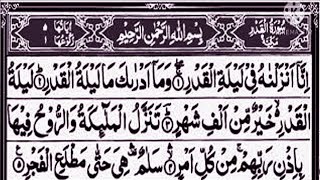 سورة القدر مكية
بسم الله الرحمن الرحيم
إنا أنزلنه في ليلة القدر وما أدرىك ما ليلة القدر ليلة
القدر خير من ألف شهر تنزل الملئكة والروح فيها
بإذن ربهم من كل أمر سلم هي حتى مطلع الفجر